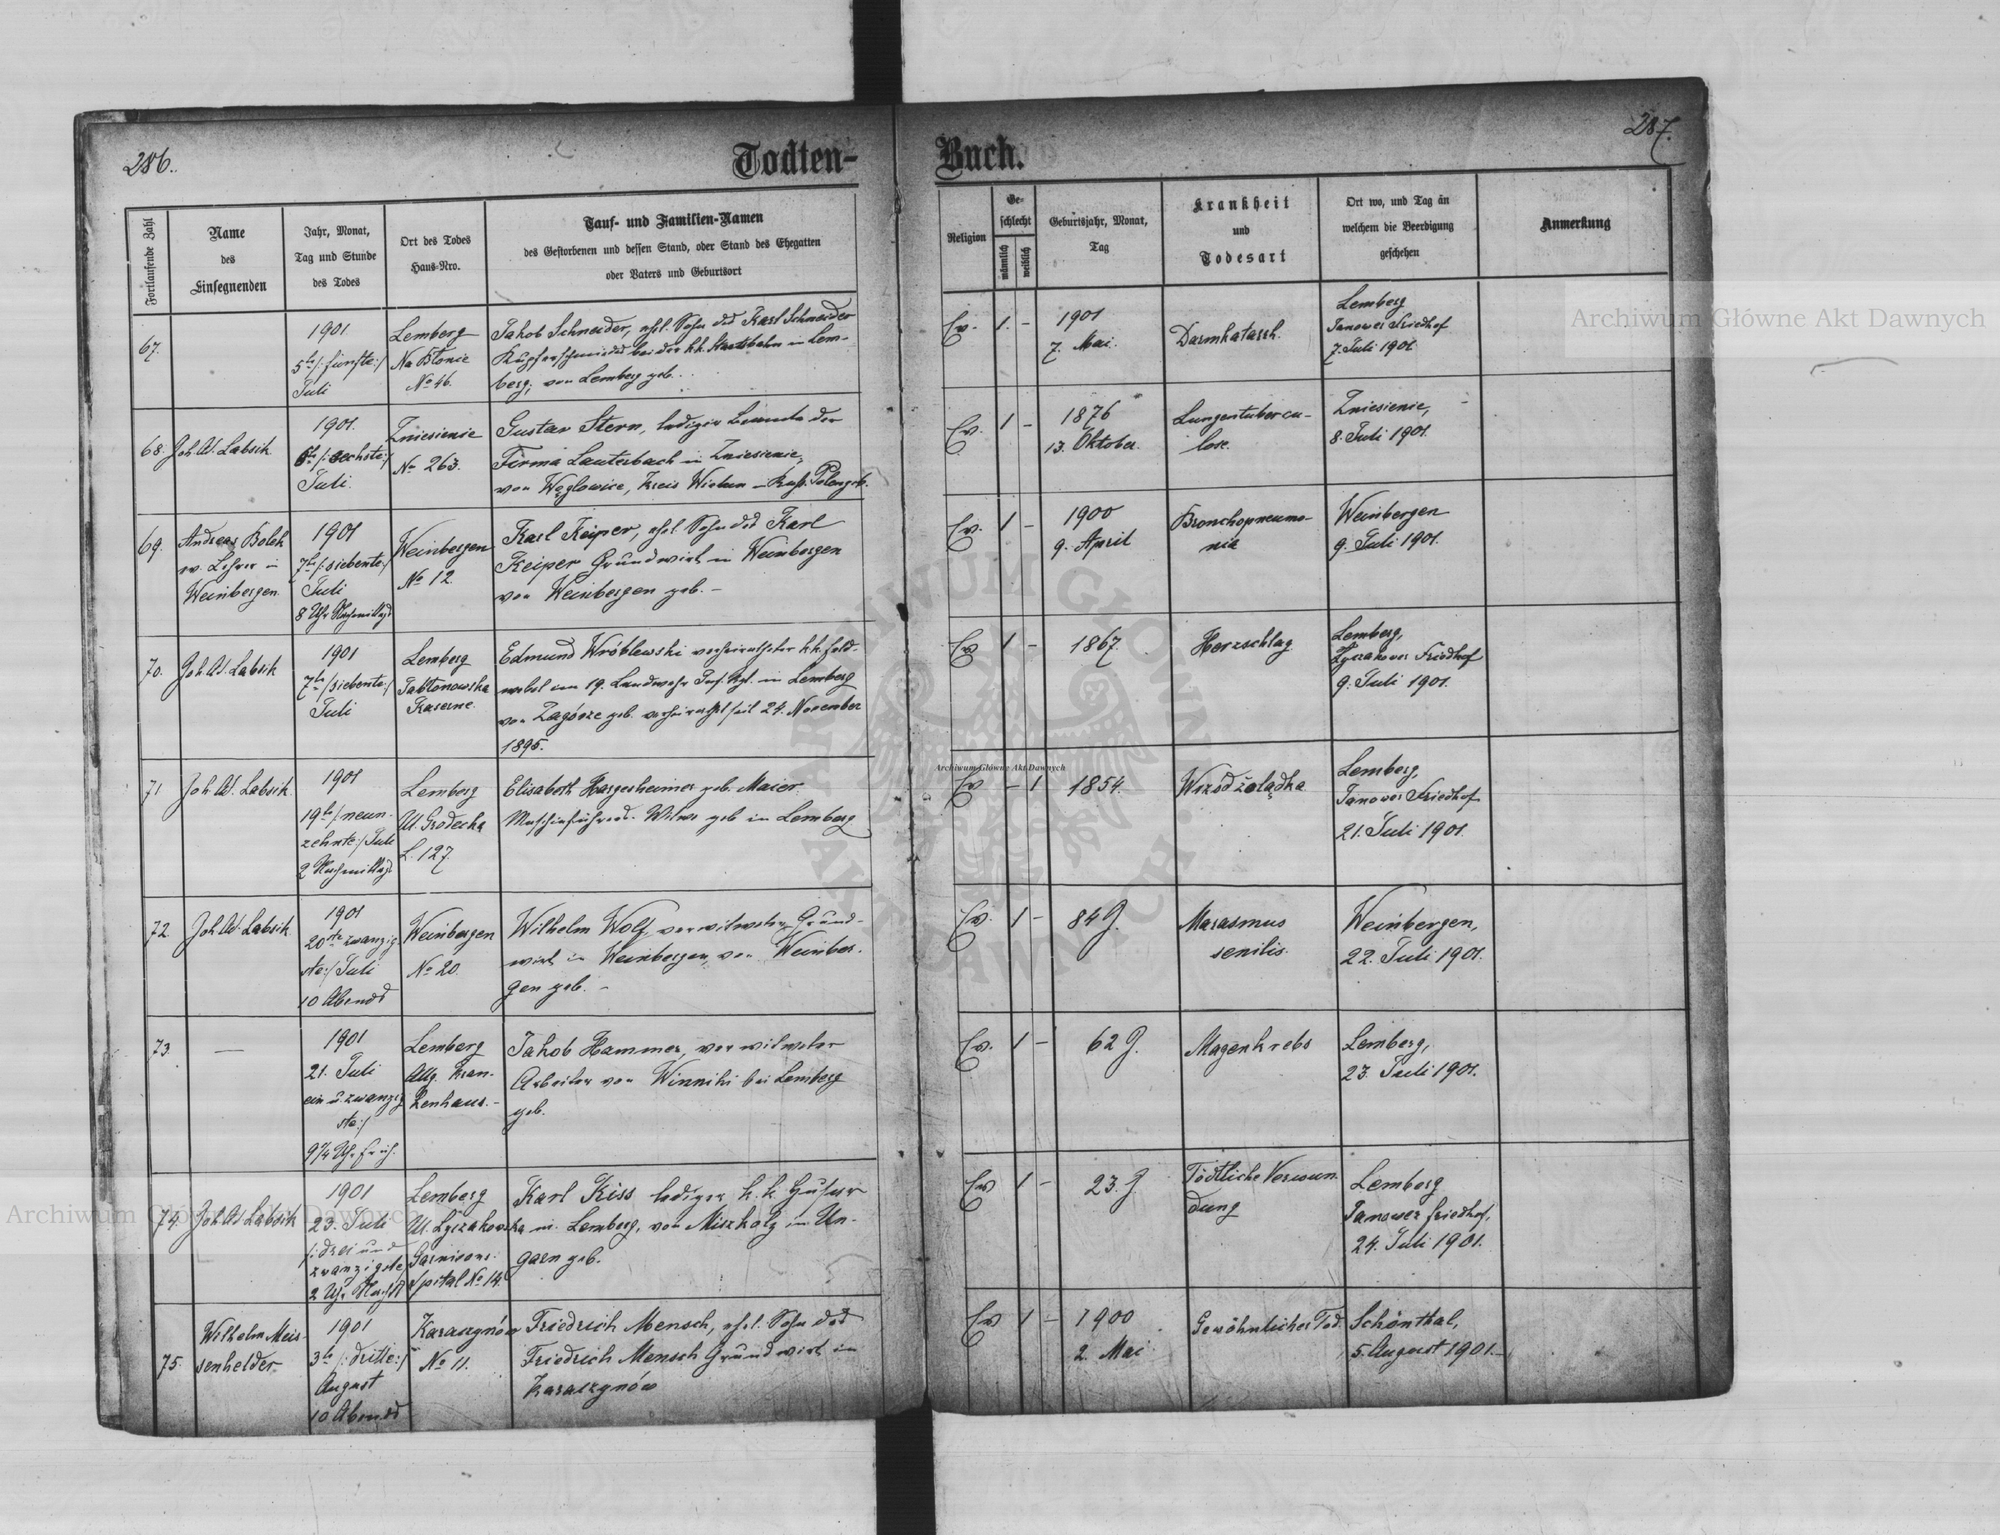 286.
287.
Todten-
Buch.
Fortlaufende Zahl
Name
des
Einsegnenden
Jahr, Monat,
Tag und Stunde
des Todes
Ort des Todes
Haus-Nro.
Tauf- und Familien-Namen
des Gestorbenen und dessen Stand, oder Stand des Ehegatten
oder Vaters und Geburtsort
Religion
Ge-
schlecht
männlich
weiblich
Geburtsjahr, Monat,
Tag
Krankheit
und
Todesart
Ort wo, und Tag an
welchem die Beerdigung
geschehen
Anmerkung
67.
1901
5te /: fünfte :/
Juli
Lemberg
Na Błonie
No 46.
Jakob Schneider, ehel. Sohn des Karl Schneider
Kupferschmiedes bei der k.k. Staatsbahn in Lem-
berg, von Lemberg geb.
Ev. 1. -
1901
7. Mai.
Darmkatarrh.
Lemberg
Janower Friedhof
7. Juli 1901.
68.
Joh. W. Labsik
1901.
6te /: sechste :/
Juli.
Zniesienie
No 263.
Gustav Stern, lediger Beamte der
Firma Lauterbach in Zniesienie,
von Węglowice, Kreis Wielun in Russ. Polen geb.
Ev. 1 -
1876
13. Oktober.
Lungentubercu-
lose.
Zniesienie,
8. Juli 1901.
69.
Andreas Bolek
ev. Lehrer in
Weinbergen
1901
7te /: siebente :/
Juli
8 Uhr Nachmittags
Weinbergen
No 12.
Karl Keiper, ehel. Sohn des Karl
Keiper Grundwirt in Weinbergen
von Weinbergen geb. -
Ev. 1 -
1900
9. April
Bronchopneumo-
nia
Weinbergen
9. Juli 1901.
70.
Joh. W. Labsik
1901
7te /: siebente :/
Juli
Lemberg
Jabłonowska
Kaserne.
Edmund Wróblewski verheiratheter k.k. Feld-
webel im 19. Landwehr Inf. Rgt. in Lemberg
von Zagórze geb. verheirathet seit 24. November
1895.
Ev 1 -
1867.
Herzschlag
Lemberg,
Łyczakower Friedhof
9. Juli 1901.
71
Joh. W. Labsik.
1901
19te /: neun-
zehnte :/ Juli
2 Nachmittags
Lemberg
Ul. Grodecka
L. 127.
Elisabeth Hargesheimer geb. Maier
Maschinführers-Witwe geb in Lemberg
Ev - 1
1854.
Wrzód żołądka
Lemberg,
Janower Friedhof
21. Juli 1901.
72.
Joh. W. Labsik.
1901
20ste zwanzig-
ste :/ Juli
10 Abends
Weinbergen
No 20.
Wilhelm Wolf, verwitweter Grund-
wirt in Weinbergen, von Weinber-
gen geb. -
Ev. 1 -
84 J.
Marasmus
senilis.
Weinbergen,
22. Juli 1901.
73.
—
1901
21. Juli
ein u. zwanzig
ste :/
9¼ Uhr früh.
Lemberg
Allg. Kran-
kenhaus. -
Jakob Hammer, verwitweter
Arbeiter von Winniki bei Lemberg
geb.
Ev. 1 -
62 J.
Magenkrebs
Lemberg,
23. Juli 1901.
74.
Joh. W. Labsik
1901
23. Juli
/: drei und
zwanzigste
2 Uhr Nachts
Lemberg
Ul. Łyczakowska
Garnisons-
spital No 14.
Karl Kiss lediger k.k. Husar
in Lemberg, von Miszkolz in Un-
garn geb.
Ev 1 -
23. J.
Tödtliche Verwun-
dung
Lemberg
Janower Friedhof,
24. Juli 1901.
75.
Wilhelm Meis-
senhelder
1901
3te /: dritte :/
August
10 Abends
Karaczynów
No 11.
Friedrich Mensch, ehel. Sohn des
Friedrich Mensch Grundwirt in
Karaczynów
Ev 1 -
1900
2. Mai
Gewöhnlicher Tod.
Schönthal,
5. August 1901. -
Archiwum Główne Akt Dawnych
Archiwum Główne Akt Dawnych
Archiwum Główne Akt Dawnych
ARCHIWUM GŁÓWNE AKT DAWNYCH